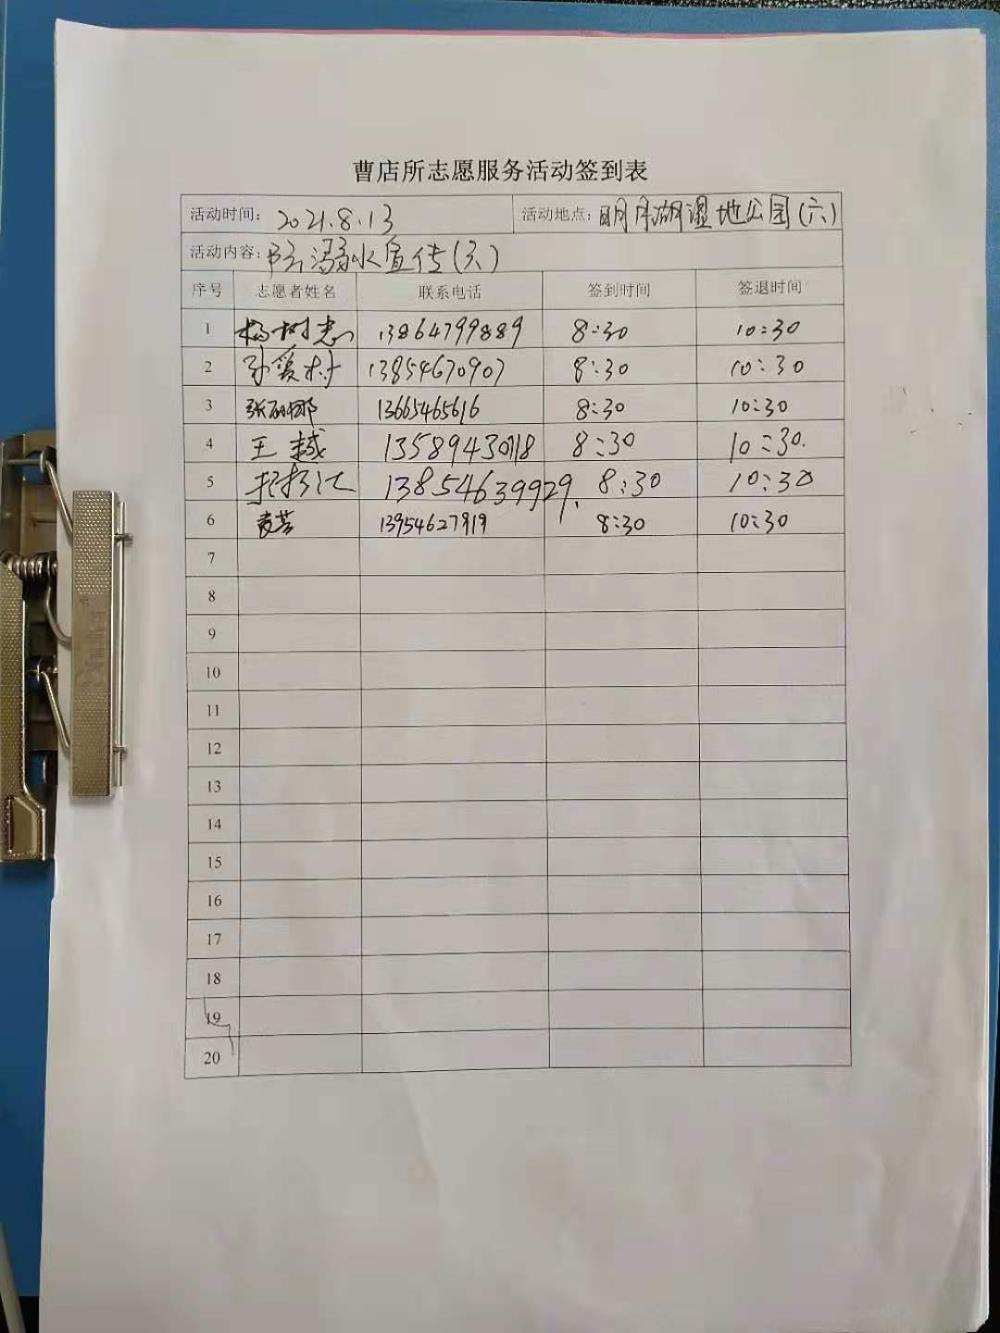 曹店所志愿服务活动签到表
活动时间: 2021.8.13 活动地点: 明月湖湿地公园(六)
活动内容: 防溺水宣传(六)
序号 志愿者姓名 联系电话 签到时间 签退时间
1 杨树忠 13864799889 8:30 10:30
2 孙爱村 13854670907 8:30 10:30
3 张丽娜 13665465616 8:30 10:30
4 王越 13589430118 8:30 10:30.
5 13854639929. 8:30 10:30
6 袁芸 13954627919 8:30 10:30
7
8
9
10
11
12
13
14
15
16
17
18
19
20